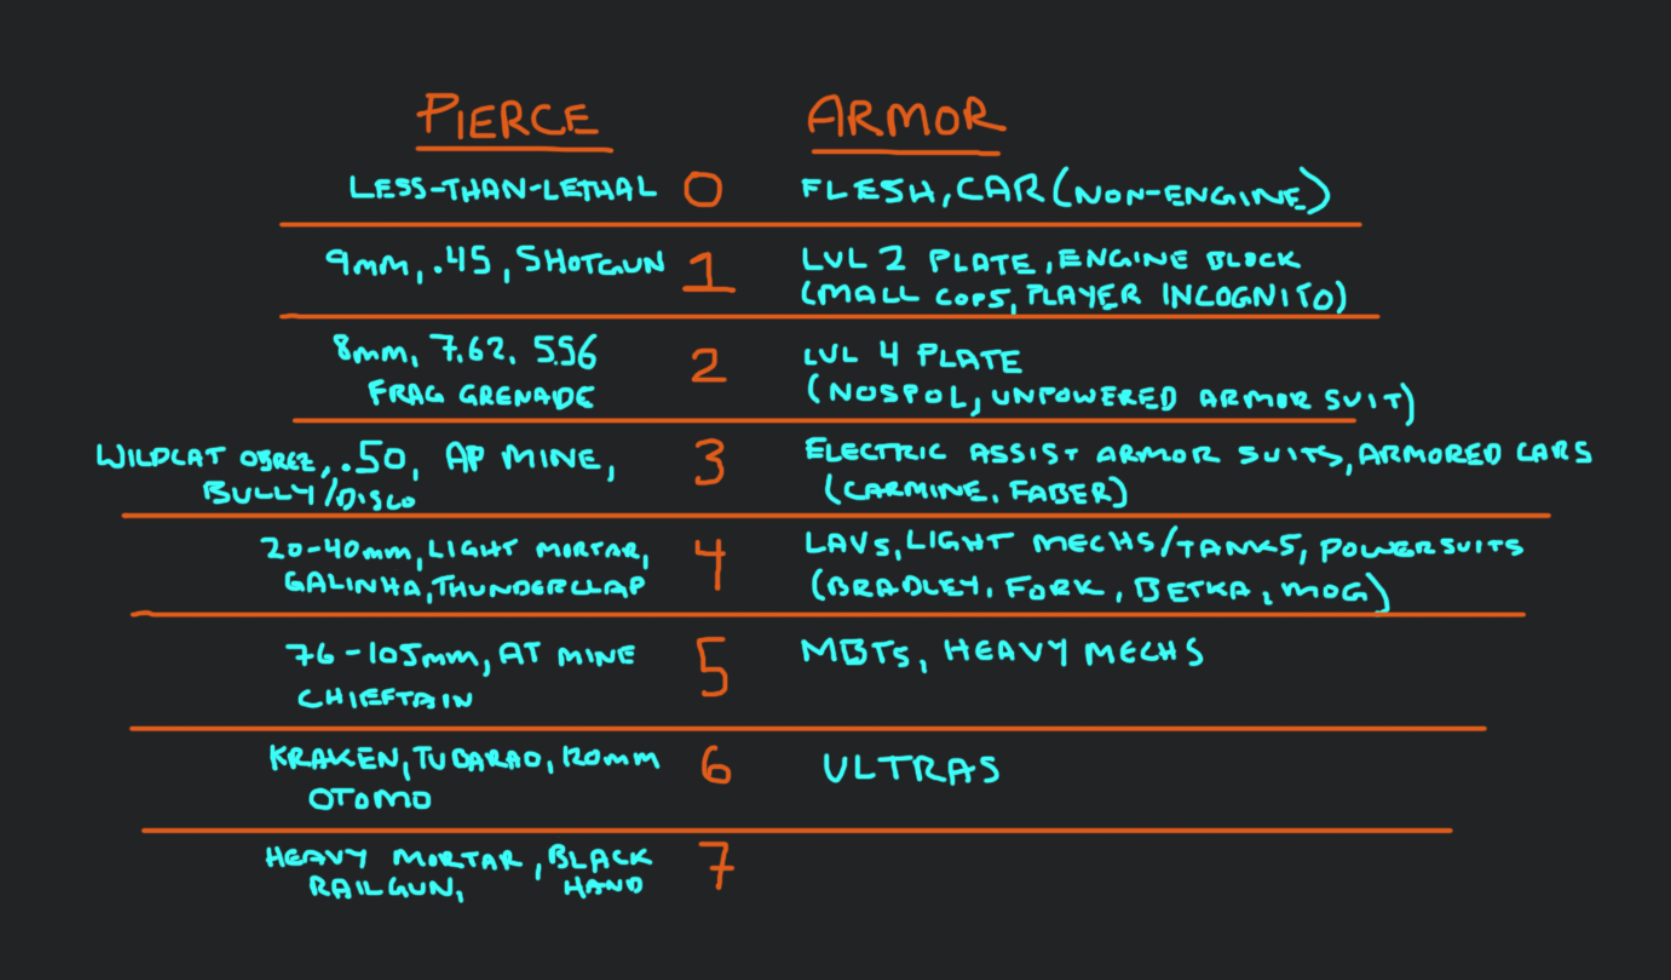 PIERCE ARMOR
LESS-THAN-LETHAL 0 FLESH, CAR (NON-ENGINE)
9mm, .45, SHOTGUN 1 LVL 2 PLATE, ENGINE BLOCK
(MALL COPS, PLAYER INCOGNITO)
8mm, 7.62, 5.56 2 LVL 4 PLATE
FRAG GRENADE (NOSPOL, UNPOWERED ARMOR SUIT)
WILDCAT OBREZ, .50, AP MINE, 3 ELECTRIC ASSIST ARMOR SUITS, ARMORED CARS
BULLY/DISCO (CARMINE, FABER)
20-40mm, LIGHT MORTAR, 4 LAVS, LIGHT MECHS/TANKS, POWERSUITS
GALINHA, THUNDERCLAP (BRADLEY, FORK, BETKA, MOG)
76-105mm, AT MINE 5 MBTS, HEAVY MECHS
CHIEFTAIN
KRAKEN, TUBARAO, 120mm 6 ULTRAS
OTOMO
HEAVY MORTAR, BLACK 7
RAILGUN, HAND